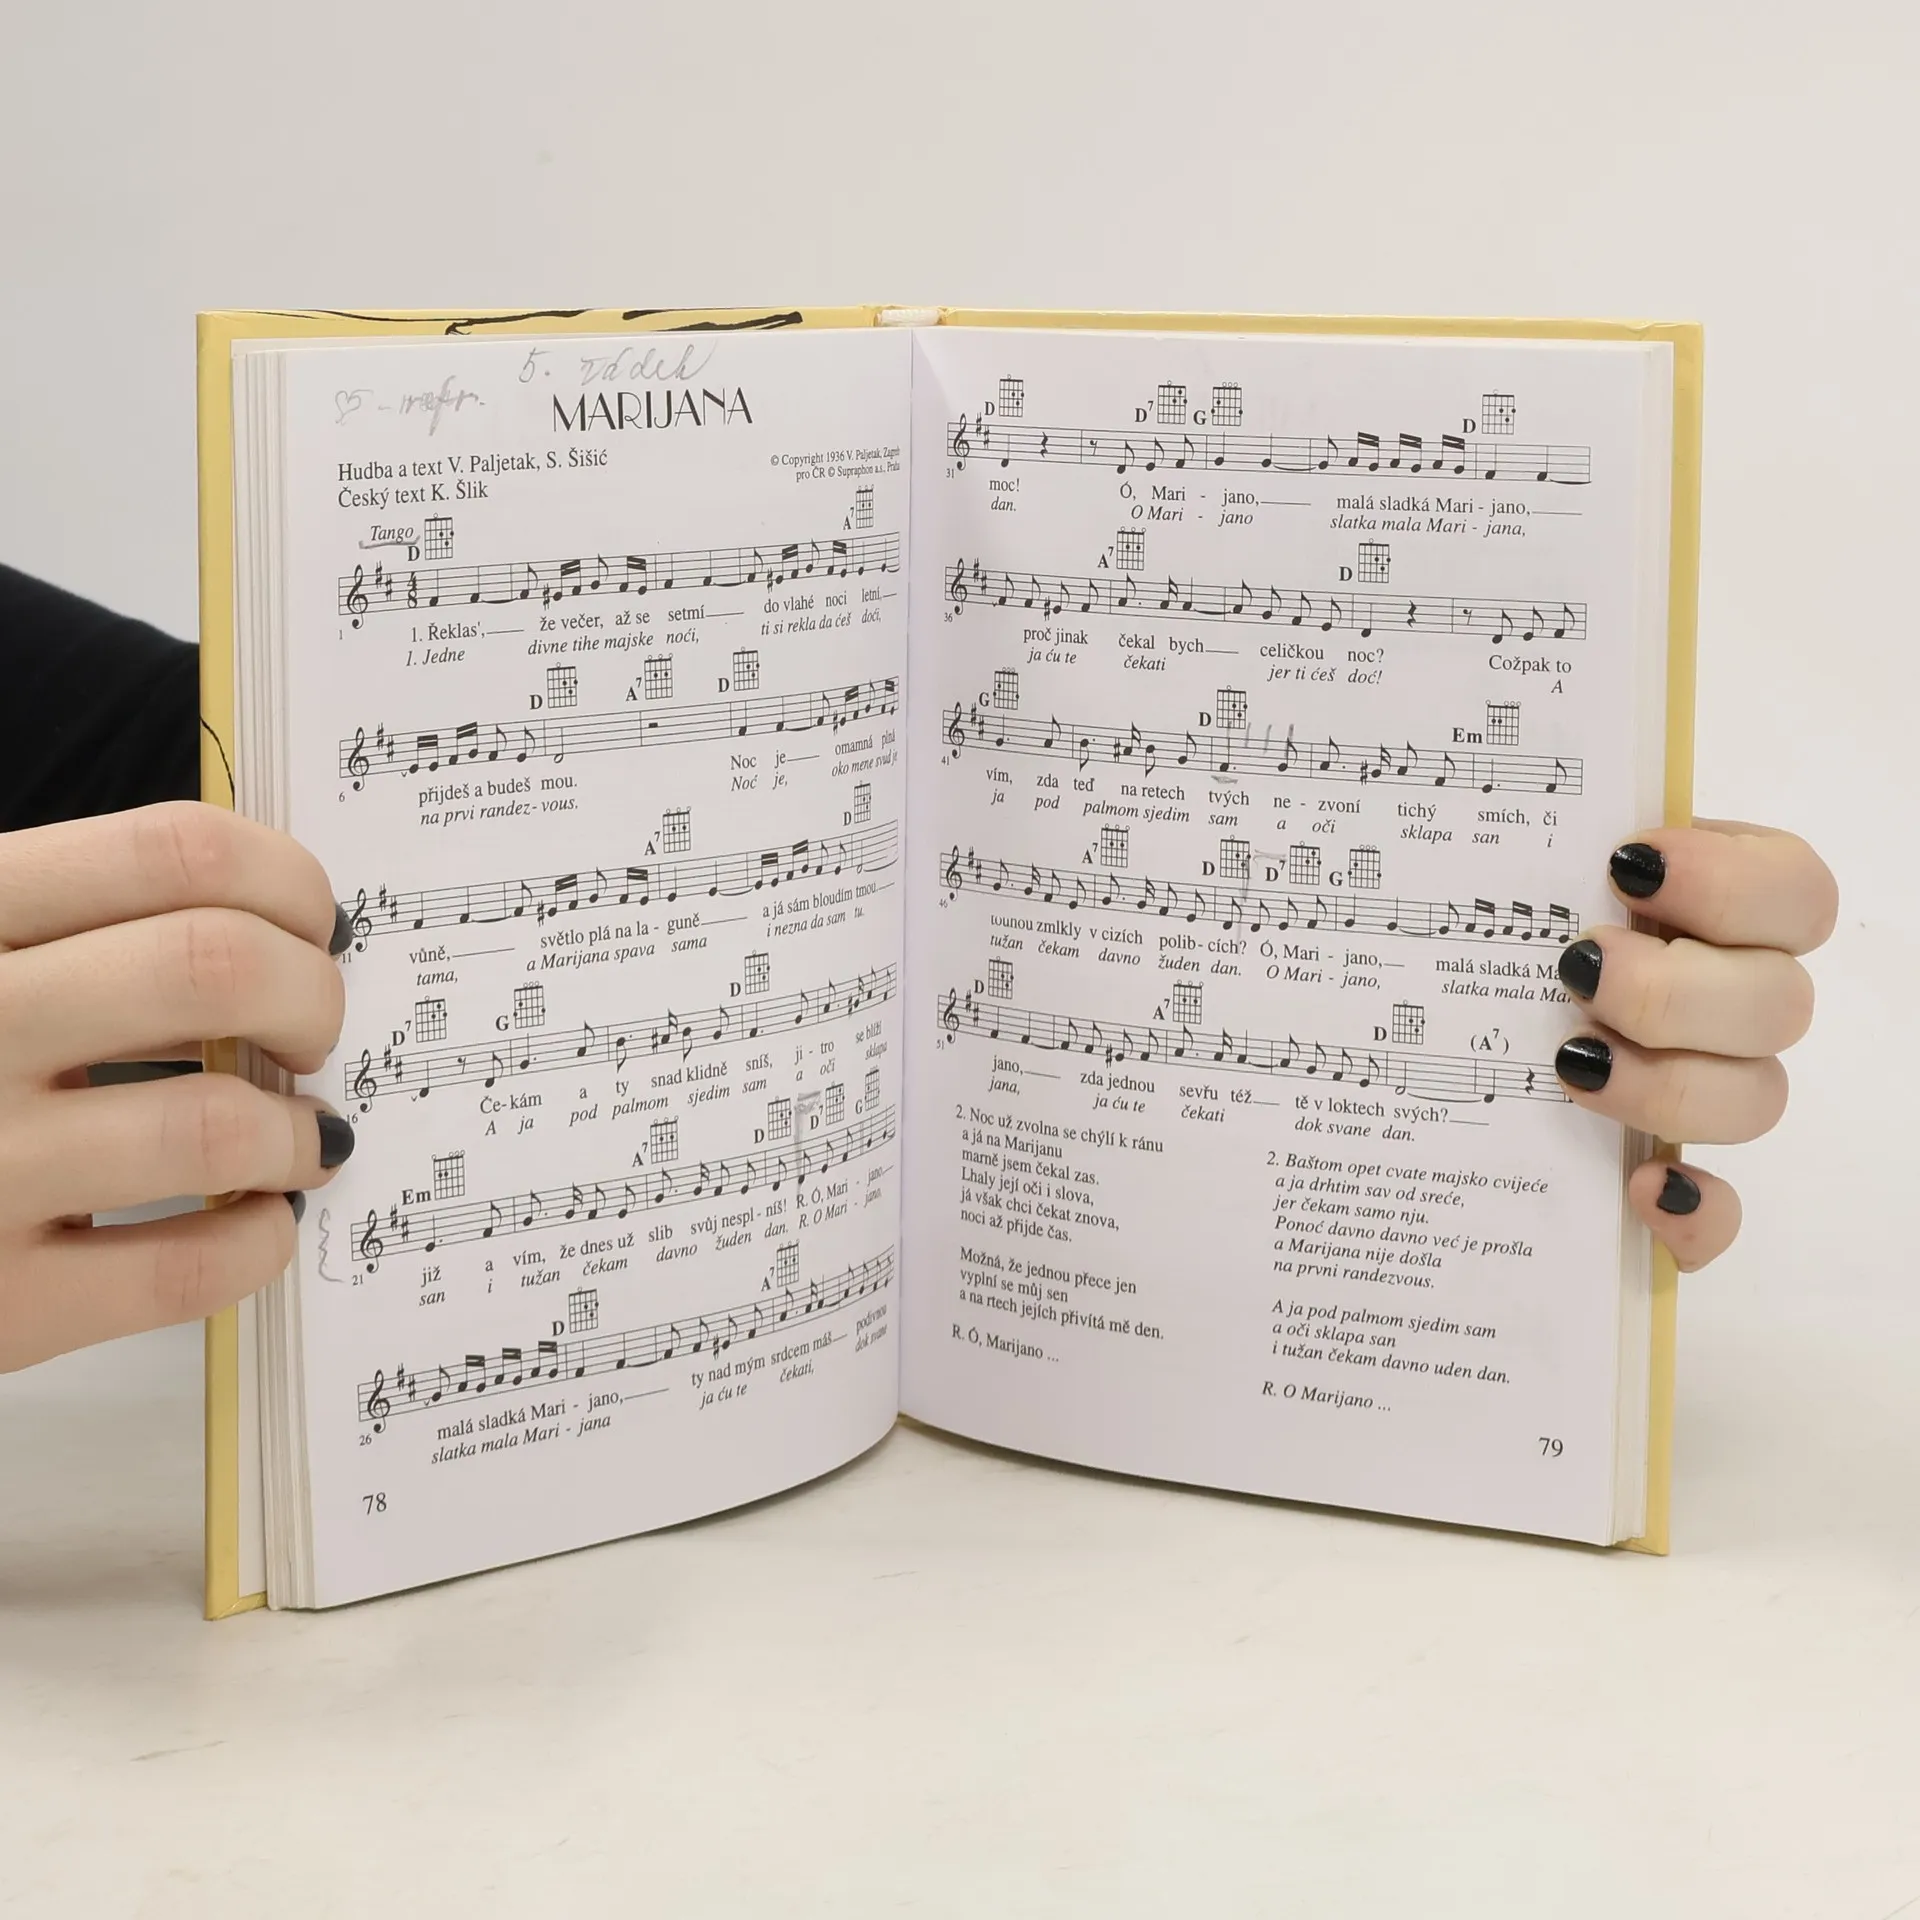 5. řádek
MARIJANA
Hudba a text V. Paljetak, S. Šišić
© Copyright 1936 V. Paljetak, Zagreb
Český text K. Šlik
pro ČR © Supraphon a.s., Praha
Tango
D A7
1
1. Řeklas',___ že večer, až se setmí___ do vlahé noci letní,___
1. Jedne divne tihe majske noći, ti si rekla da ćeš doći,
D A7 D
6
přijdeš a budeš mou. Noc je___ omamná plná
na prvi randez-vous. Noć je, oko mene svud je
A7 D
11
vůně,___ světlo plá na la - guně___ a já sám bloudím tmou.___
tama, a Marijana spava sama i nezna da sam tu.
D7 G D
16
Če-kám a ty snad klidně sníš, ji - tro se blíží
A ja pod palmom sjedim sam a oči sklapa
Em A7 D D7 G
21
již a vím, že dnes už slib svůj nespl - níš! R. Ó, Mari - jano,___
san i tužan čekam davno žuden dan. R. O Mari - jano,
D A7
26
malá sladká Mari - jano,___ ty nad mým srdcem máš___ podivnou
slatka mala Mari - jana ja ću te čekati, dok svane
78
D D7 G D
31
moc! Ó, Mari - jano,___ malá sladká Mari - jano,___
dan. O Mari - jano slatka mala Mari - jana,
A7 D
36
proč jinak čekal bych___ celičkou noc? Cožpak to
ja ću te čekati jer ti ćeš doć! A
G D Em
41
vím, zda teď na retech tvých ne - zvoní tichý smích, či
ja pod palmom sjedim sam a oči sklapa san i
A7 D D7 G
46
touhou zmlkly v cizích polib - cích? Ó, Mari - jano,___ malá sladká
tužan čekam davno žuden dan. O Mari - jano, slatka mala
D A7 D (A7)
51
jano,___ zda jednou sevřu též___ tě v loktech svých?___
jana, ja ću te čekati dok svane dan.
2. Noc už zvolna se chýlí k ránu
a já na Marijanu
marně jsem čekal zas.
Lhaly její oči i slova,
já však chci čekat znova,
noci až přijde čas.
Možná, že jednou přece jen
vyplní se můj sen
a na rtech jejích přivítá mě den.
R. Ó, Marijano ...
2. Baštom opet cvate majsko cvijeće
a ja drhtim sav od sreće,
jer čekam samo nju.
Ponoć davno davno već je prošla
a Marijana nije došla
na prvni randezvous.
A ja pod palmom sjedim sam
a oči sklapa san
i tužan čekam davno uden dan.
R. O Marijano ...
79